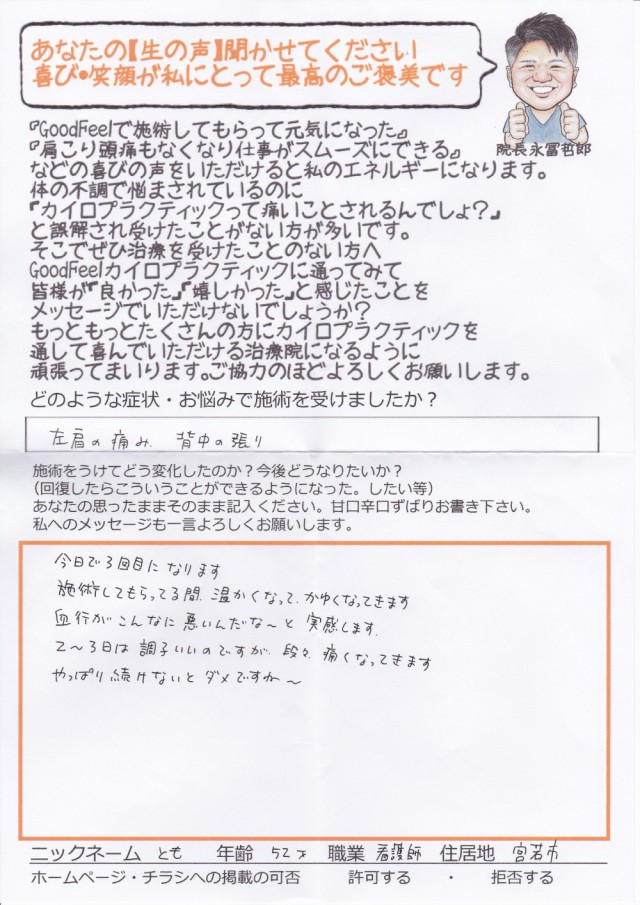 あなたの【生の声】聞かせてください
喜び・笑顔が私にとって最高のご褒美です
院長永冨哲郎
『GoodFeelで施術してもらって元気になった』
『肩こり頭痛もなくなり仕事がスムーズにできる』
などの喜びの声をいただけると私のエネルギーになります。
体の不調で悩まされているのに
『カイロプラクティックって痛いことされるんでしょ？』
と誤解され受けたことがない方が多いです。
そこでぜひ治療を受けたことのない方へ
GoodFeelカイロプラクティックに通ってみて
皆様が『良かった』『嬉しかった』と感じたことを
メッセージでいただけないでしょうか？
もっともっとたくさんの方にカイロプラクティックを
通して喜んでいただける治療院になるように
頑張ってまいります。ご協力のほどよろしくお願いします。
どのような症状・お悩みで施術を受けましたか？
左肩の痛み、背中の張り
施術をうけてどう変化したのか？今後どうなりたいか？
（回復したらこういうことができるようになった。したい等）
あなたの思ったままそのまま記入ください。甘口辛口ずばりお書き下さい。
私へのメッセージも一言よろしくお願いします。
今日で3回目になります
施術してもらってる間、温かくなって、かゆくなってきます
血行がこんなに悪いんだな〜と実感します。
2〜3日は調子いいのですが、段々、痛くなってきます
やっぱり続けないとダメですか〜
ニックネーム とも 年齢 52才 職業 看護師 住居地 宮若市
ホームページ・チラシへの掲載の可否 許可する ・ 拒否する